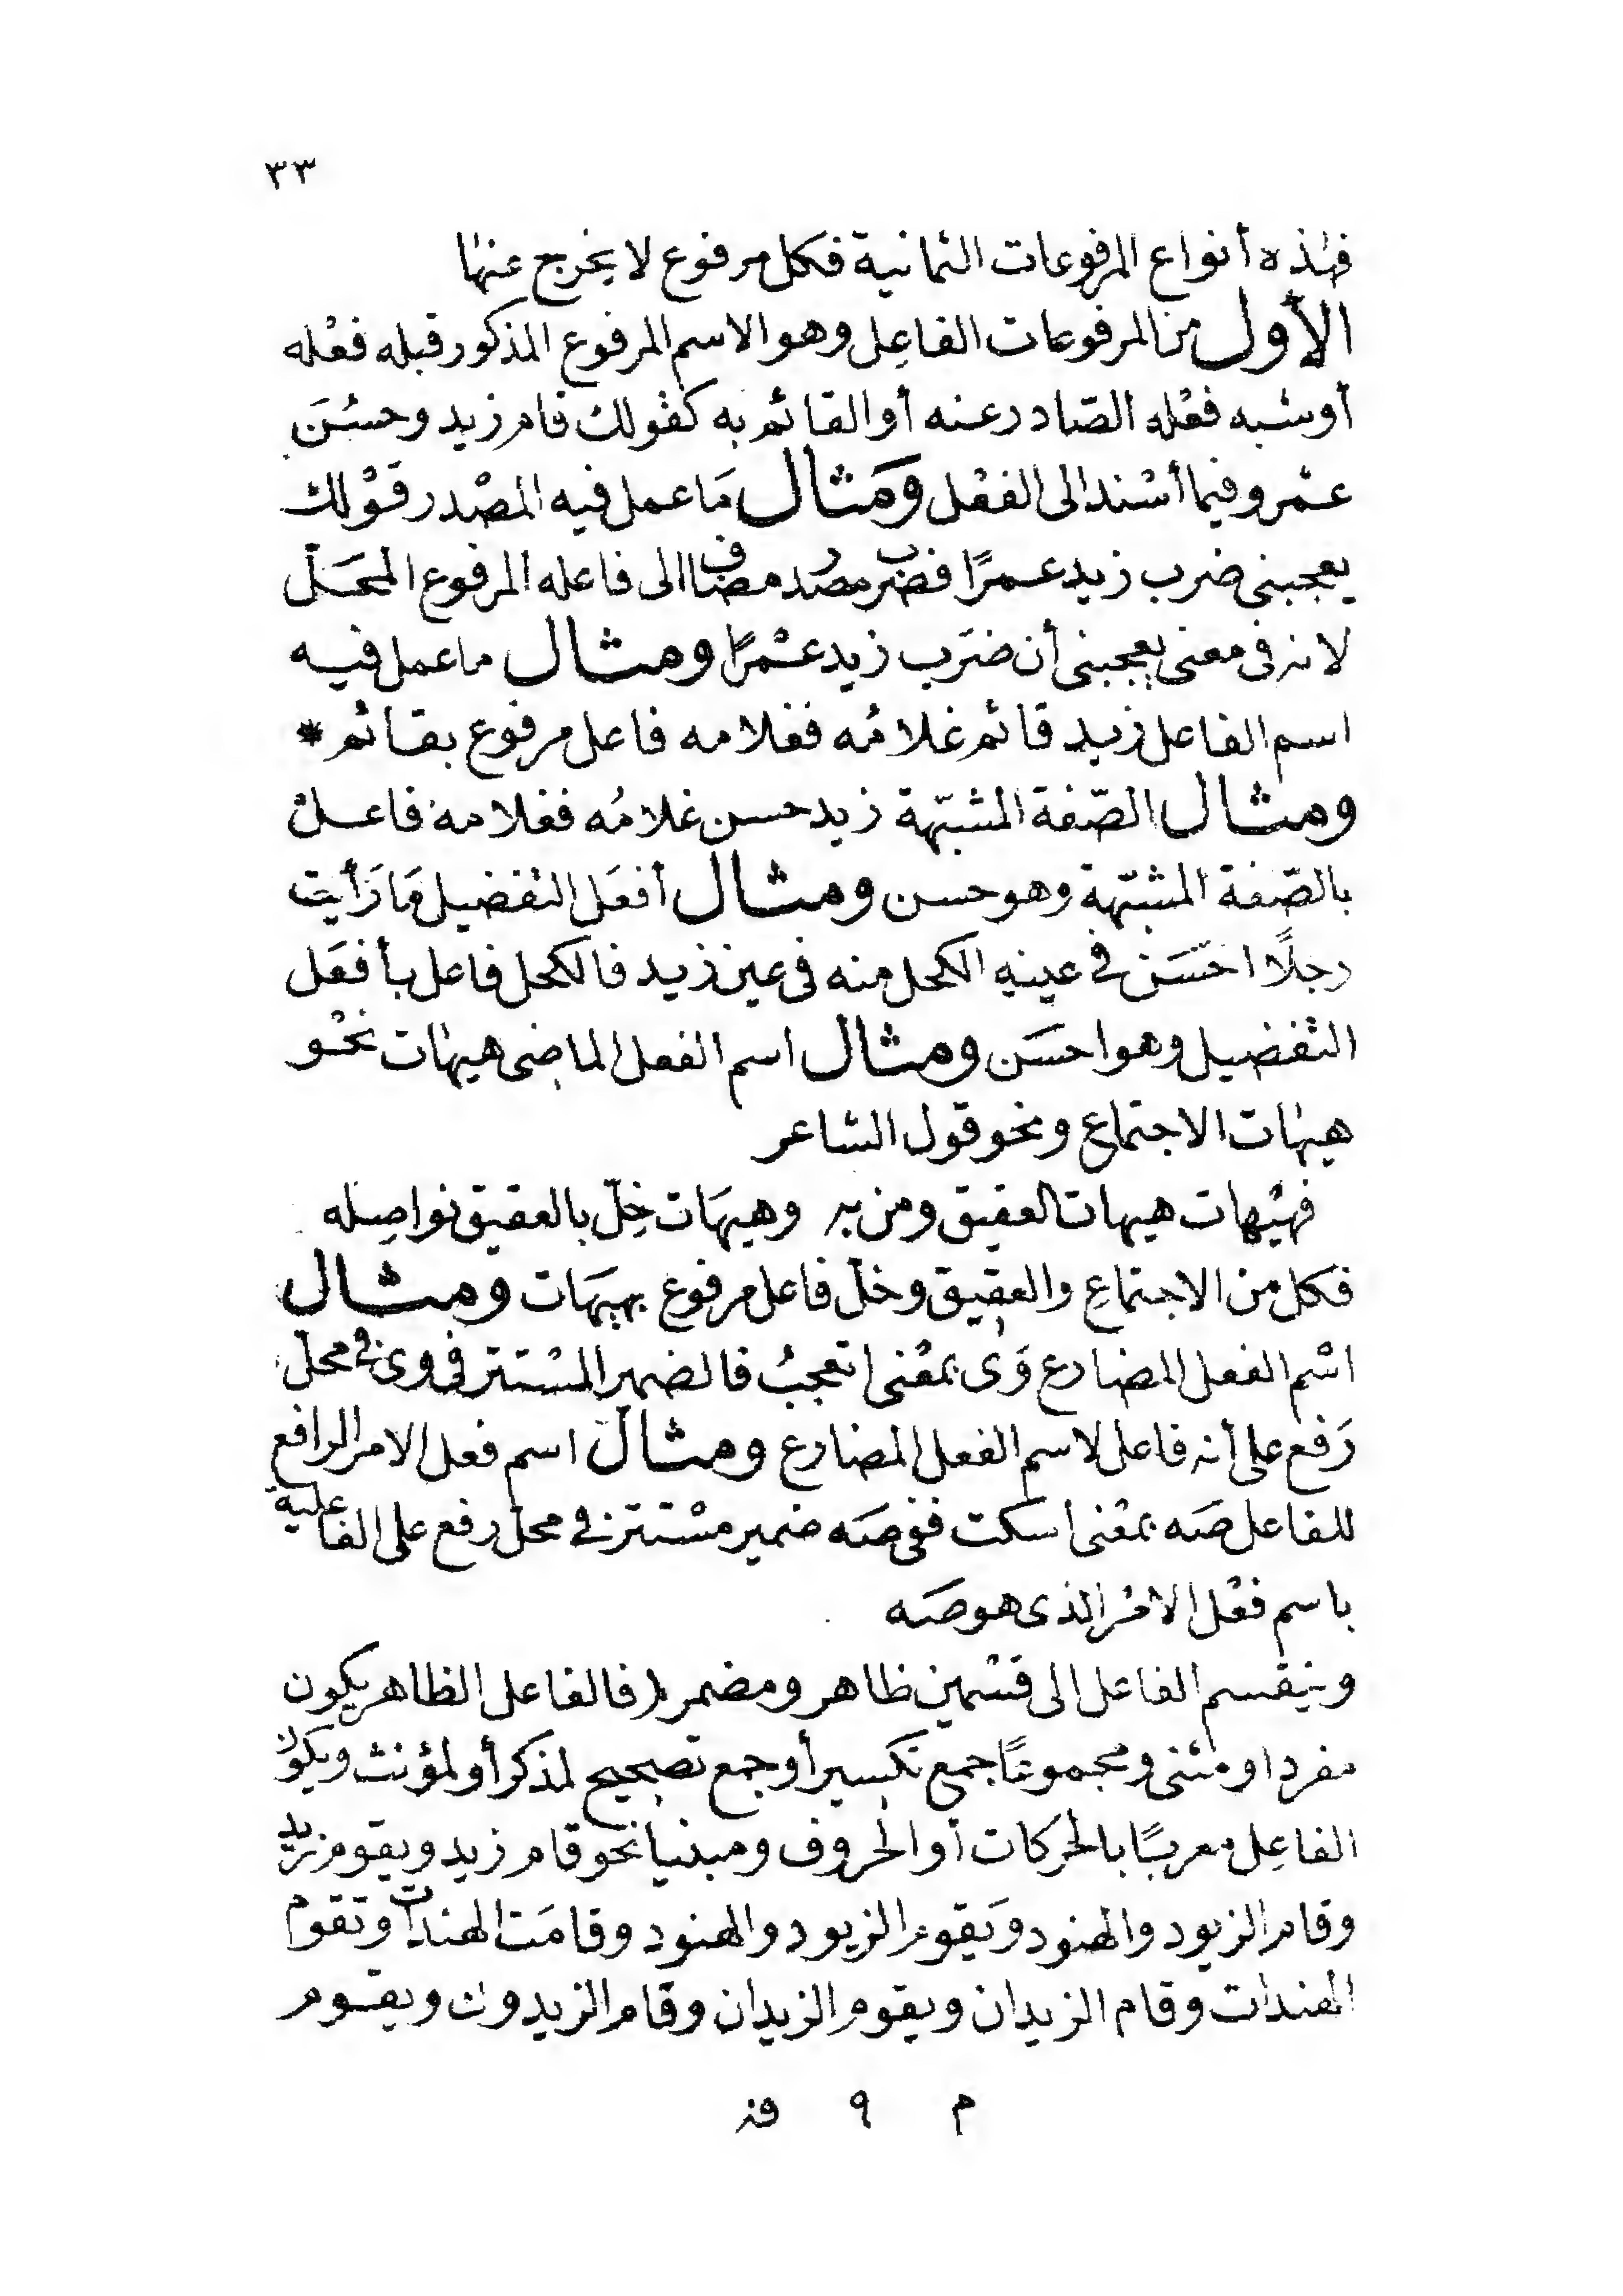 ٣٣
فهذه أنواع المرفوعات الثمانية فكل مرفوع لا يخرج عنها
الأول من المرفوعات الفاعِل وهو الاسم المرفوع المذكور قبله فعْله
أو شبه فعْله الصّادر عنه أو القائم به كقولك قام زيد وحسُنَ
عمْرو فيما أسْند الى الفعْل ومَثال مَا عمل فيه المصْدر قوْلك
يعجبنى ضرب زيد عمرًا فضرب مصدر مضاف الى فاعله المرفوع المحَلّ
لانه فى معنى يعجبنى أن ضرَب زيد عمْرًا ومثال ما عمل فيه
اسم الفاعل زيد قائم غلامُه فغلامه فاعل مرفوع بقائم *
ومثال الصّفة المشبّهة زيد حسن غلامُه فغلامه فاعل
بالصّفة المشبّهة وهو حسن ومثال أفعَل التفضيل مَا رَأيت
رجلًا احسَن فى عينهِ الكحل منه فى عين زيد فالكحل فاعل بأفعَل
التفضيل وهو احسَن ومثال اسم الفعل الماضى هيهات نحْو
هيهات الاجتماع ونحو قول الشاعر
فهيْهات هيهات العقيق ومن به وهيهَات خِلّ بالعقيق نواصِله
فكل من الاجتماع والعقيق وخلّ فاعل مرفوع بهيهَات ومثال
اسْم الفعل المضارع وَى بمعْنى اتعجبُ فالضمير المسْتتر فى وى فى محلّ
رَفع على أنه فاعل لاسم الفعل المضارع ومثال اسم فعل الامر الرافع
للفاعل صَه بمعْنى اسكت ففى صَه ضمير مسْتتر فى محلّ رفع على الفاعلية
باسم فعْل الامْر الذى هو صَه
وينقسم الفاعل الى قسْمين ظاهر ومضمر فالفاعل الظاهر يكون
مفردا ومثنى ومجموعًا جمع تكسير أو جمع تصحيح لمذكر أو لمؤنث ويكون
الفاعِل معربًا بالحركات أو الحروف ومبنيا نحو قام زيد ويقوم زيد
وقام الزيود والهنود وَيقوم الزيود والهنود وقامَت الهندات وتقوم
الهندات وقام الزيدان ويقوم الزيدان وقام الزيدون ويقوم
م ٩ فز